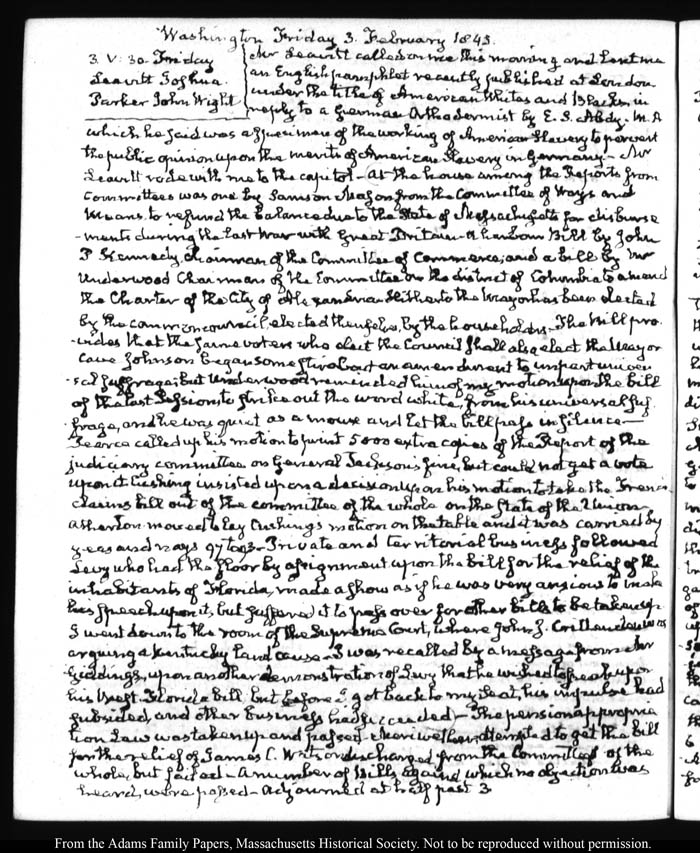 Washington Friday 3. February 1843.
3. V: 30. Friday
Leavitt Joshua.
Parker John Wright
Mr Leavitt called on me this morning and lent me
an English pamphlet recently published at London
under the title of American Whites and Blacks in
reply to a German Orthodermist by E. S. Abdy. M. A
which he said was a specimen of the working of American Slavery to pervert
the public opinion upon the merits of American Slavery in Germany— Mr
Leavitt rode with me to the capitol— At the house among the Reports from
Committees was one by Samson Mason from the Committee of Ways and
Means, to refund the balance due to the State of Massachusetts for disburse
-ments during the last War with Great Britain— A harbour Bill by John
P Kennedy, chairman of the Committee of Commerce; and a bill by Mr
Underwood Chairman of the Committee for the district of Columbia to amend
the Charter of the City of Alexandria. Hitherto the Mayor has been elected
by the common council, elected themselves, by the householders. The Bill pro
-vides that the same voters who elect the Council shall also elect the Mayor
Cave Johnson began some stir about an amendment to impart univer
-sal suffrage; but Underwood reminded him of my motion upon the bill
of the last Session to strike out the word white, from his universal suf
frage, and he was quiet as a mouse and let the bill pass in silence—
Pearce called up his motion to print 5000 extra copies of the Report of the
judiciary committee on General Jackson's fine, but could not get a vote
upon it Cushing insisted upon a decision upon his motion to take the French
claims bill out of the committee of the whole on the State of the Union
Atherton moved to lay Cushing's motion on the table and it was carried by
yeas and nays 97 to 93— Private and territorial business followed
Levy who had the floor by assignment upon the bill for the relief of the
inhabitants of Florida, made a show as if he was very anxious to make
his speech upon it, but suffered it to pass over for other bills to be taken up
I went down to the room of the Supreme Court, where John J. Crittenden was
arguing a Kentucky land cause— I was recalled by a message from Mr
Giddings, upon another demonstration of Levy that he wished to speak upon
his Florida Bill but before I got back to my seat, his impulse had
subsided, and other business had succeeded— The pension appropria
tion Law was taken up and passed— Meriwether attempted to get the bill
for the relief of James C. Watson discharged from the Committee of the
whole, but failed— A number of Bills against which no objection was
heard, were passed— Adjourned at half past 3
From the Adams Family Papers, Massachusetts Historical Society. Not to be reproduced without permission.